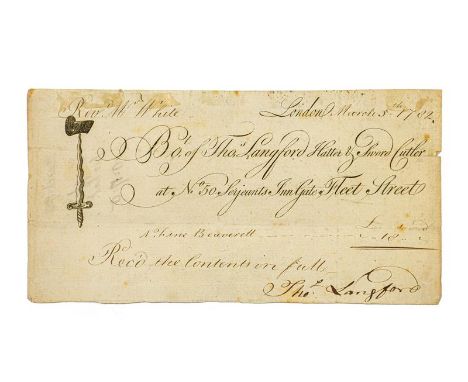 Revd. Mr. White London March 5th 1782
Bot. of Thos. Langford Hatter & Sword Cutler
at No. 50 Serjeants Inn Gate Fleet Street
A fine Beaverett
Recd the Contents in full
Thos. Langford